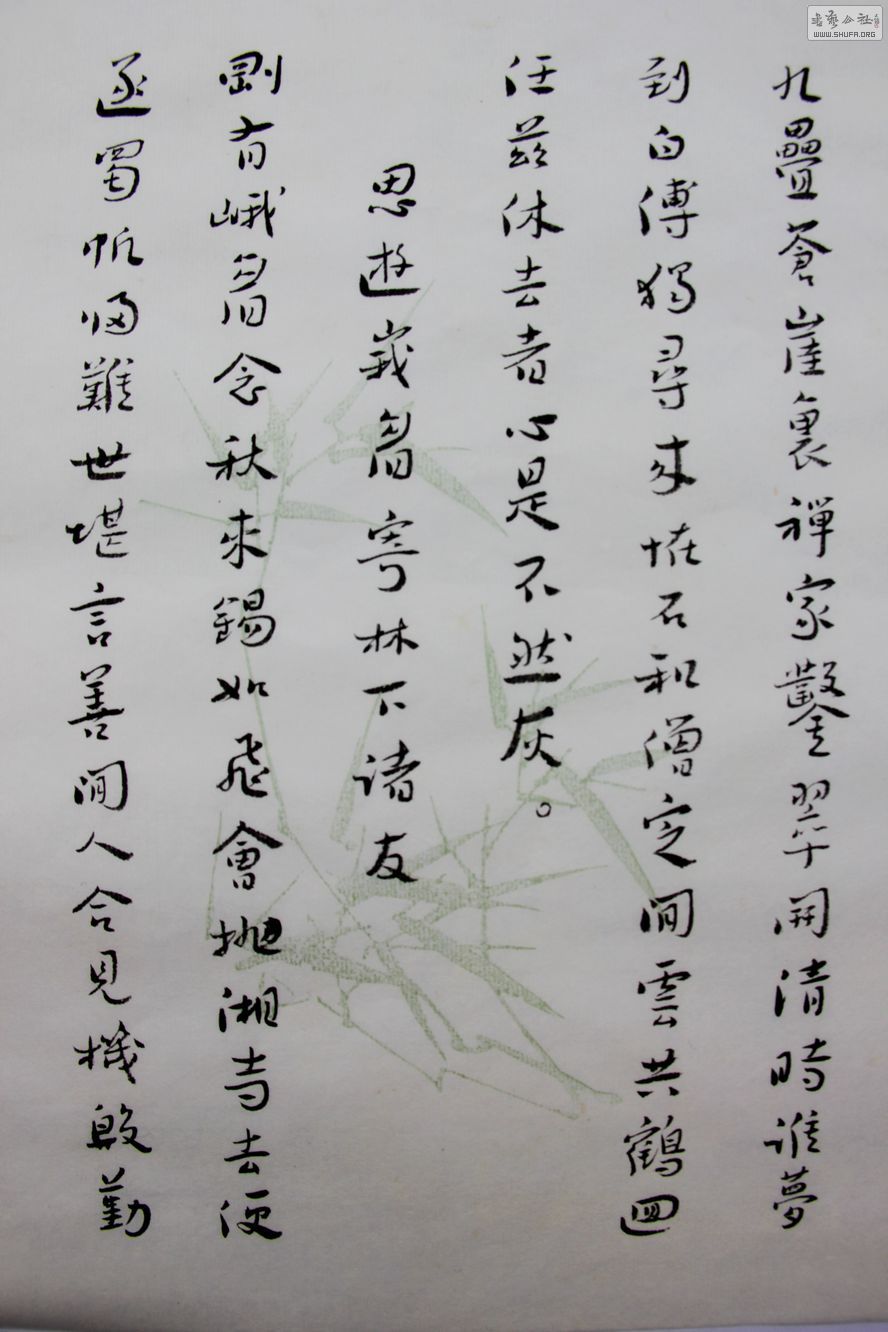 九疊蒼崖裏禪家鑿翠開清時誰夢
到白傅獨尋來怪石和僧定閒雲共鶴迴
任茲休去者心是不然灰。
思遊峨眉寄林下諸友
剛有峨眉念秋來錫如飛會抛湘寺去便
逐蜀帆歸難世堪言善閒人合見機殷勤
書藝公社
WWW.SHUFA.ORG